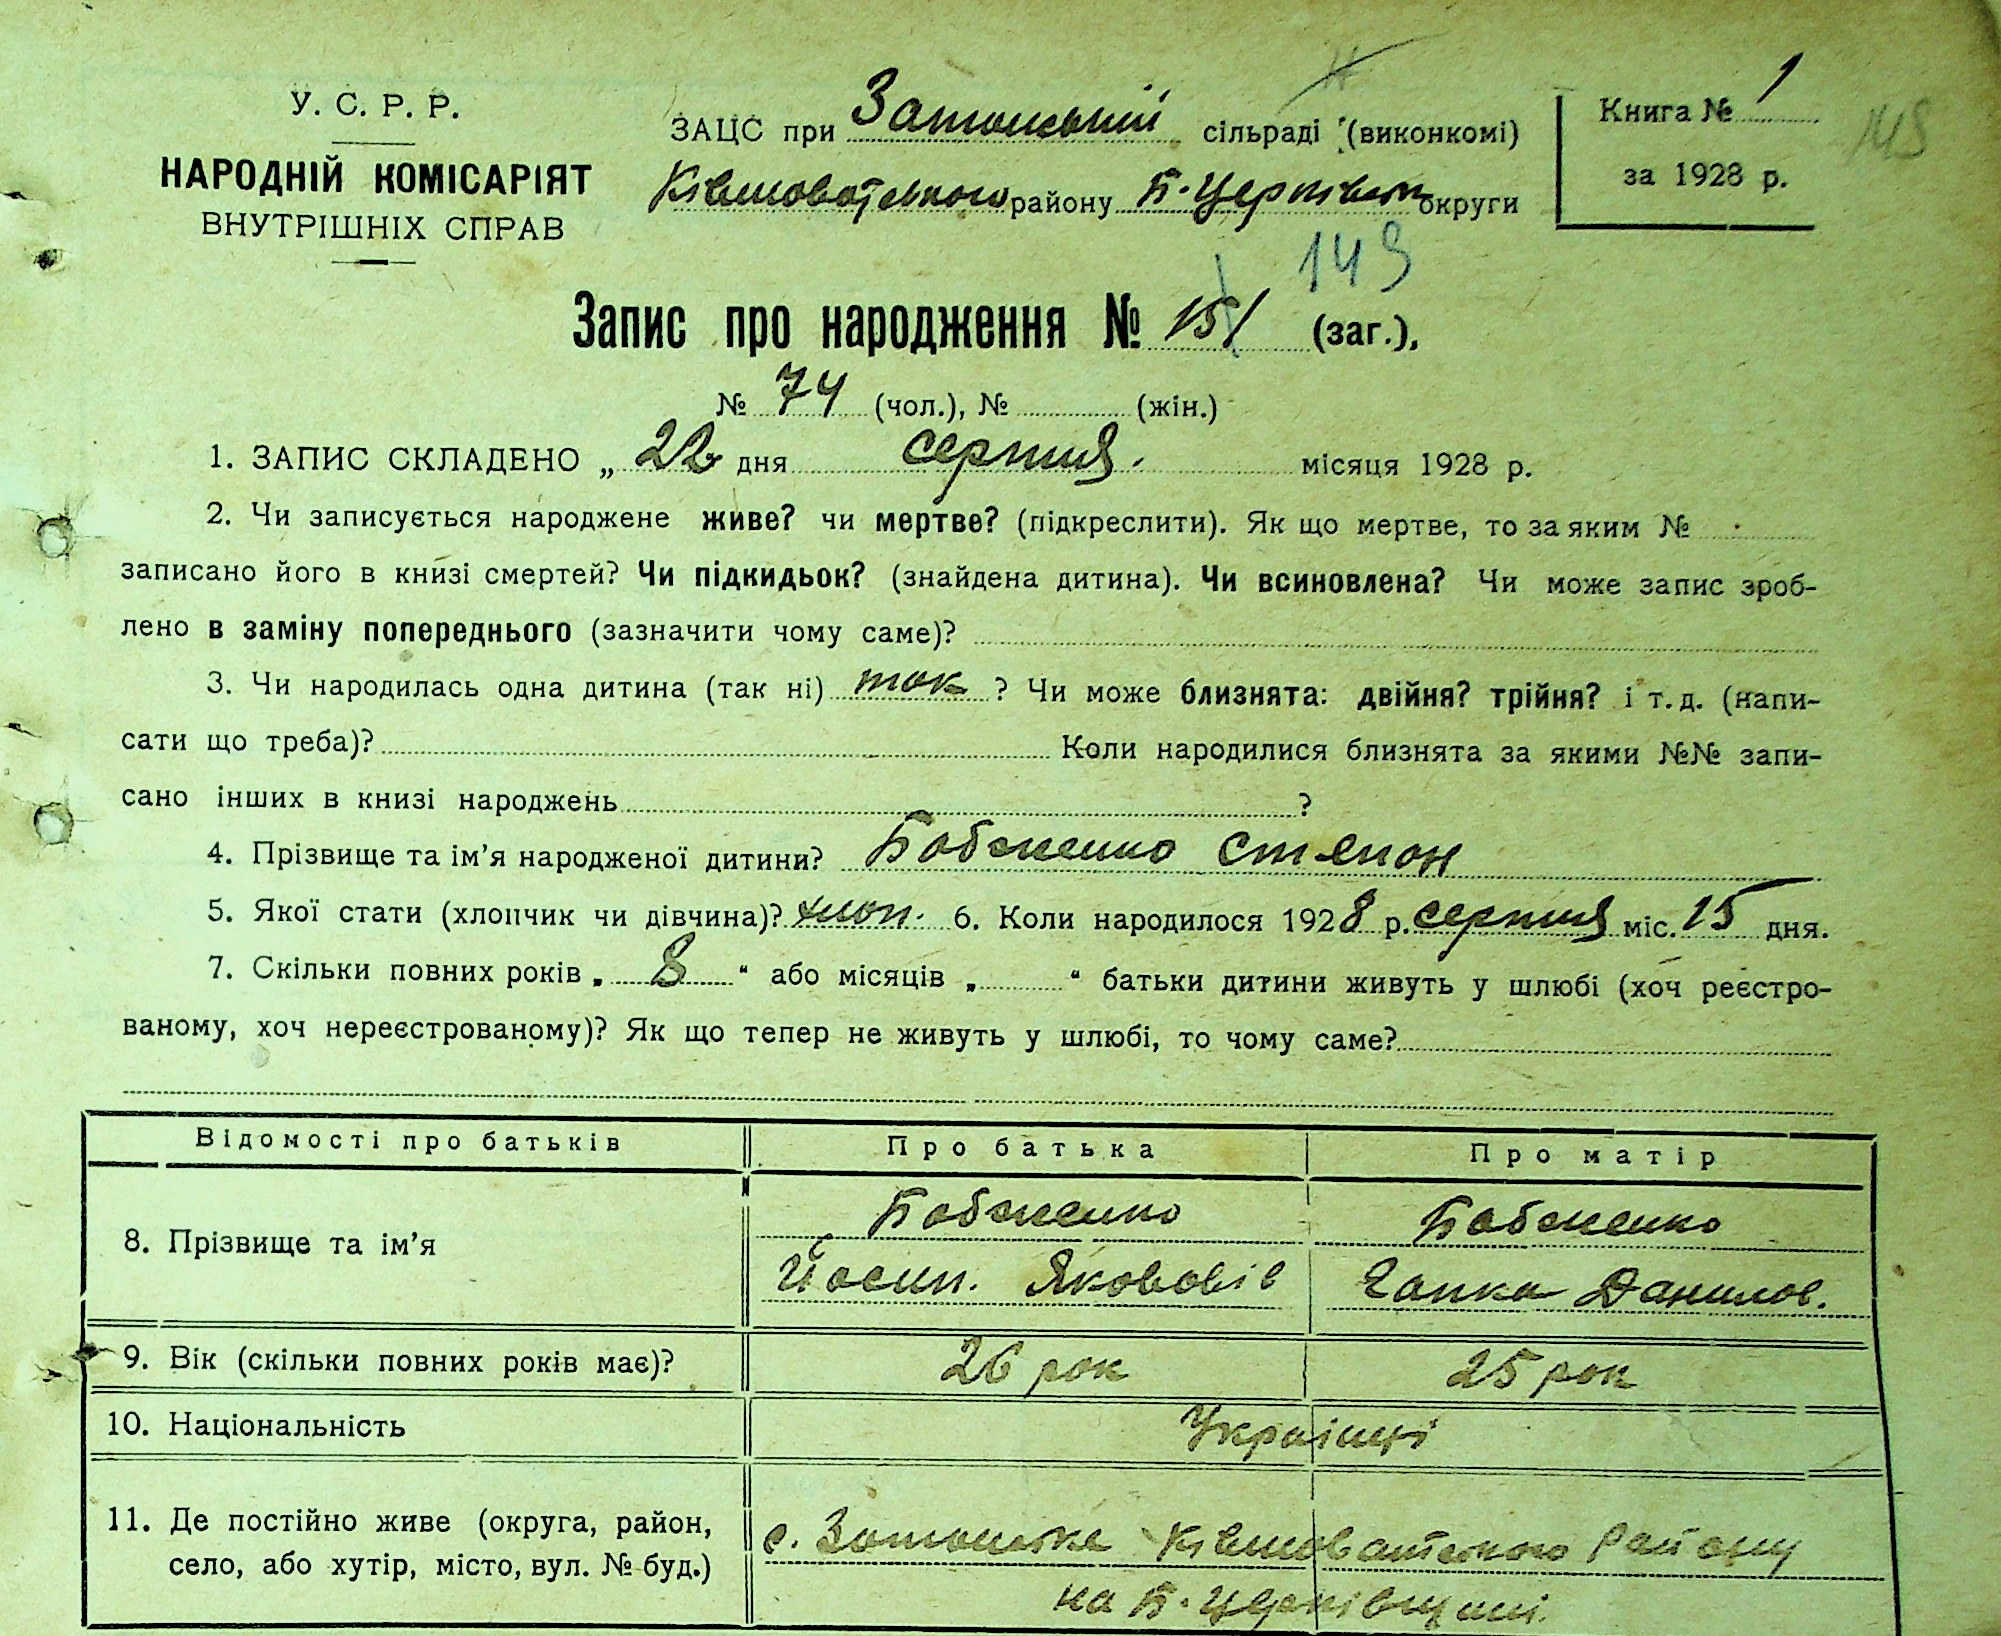 У. С. Р. Р.
НАРОДНІЙ КОМІСАРІЯТ
ВНУТРІШНІХ СПРАВ
ЗАЦС при Затонській сільраді (виконкомі)
Ківшоватського району Б. Церківськ округи
Книга № 1
за 1928 р.
145
149
Запис про народження № 151 (заг.),
№ 74 (чол.), № (жін.)
1. ЗАПИС СКЛАДЕНО „ 22 дня серпня. місяця 1928 р.
2. Чи записується народжене живе? чи мертве? (підкреслити). Як що мертве, то за яким №
записано його в книзі смертей? Чи підкидьок? (знайдена дитина). Чи всиновлена? Чи може запис зроб-
лено в заміну попереднього (зазначити чому саме)?
3. Чи народилась одна дитина (так ні) так ? Чи може близнята: двійня? трійня? і т. д. (напи-
сати що треба)? Коли народилися близнята за якими №№ запи-
сано інших в книзі народжень ?
4. Прізвище та ім'я народженої дитини? Бабженко Степан
5. Якої стати (хлопчик чи дівчина)? хлоп. 6. Коли народилося 1928 р. серпня міс. 15 дня.
7. Скільки повних років „ 8 “ або місяців „ “ батьки дитини живуть у шлюбі (хоч реєстро-
ваному, хоч нереєстрованому)? Як що тепер не живуть у шлюбі, то чому саме?
Відомості про батьків Про батька Про матір
8. Прізвище та ім'я
Бабженко Бабженко
Йосип. Яковович Гапка Данилов.
9. Вік (скільки повних років має)? 26 рок 25 рок
10. Національність Українці
11. Де постійно живе (округа, район,
село, або хутір, місто, вул. № буд.)
с. Затонське Ківшоватського Району
на Б. Церківщині.